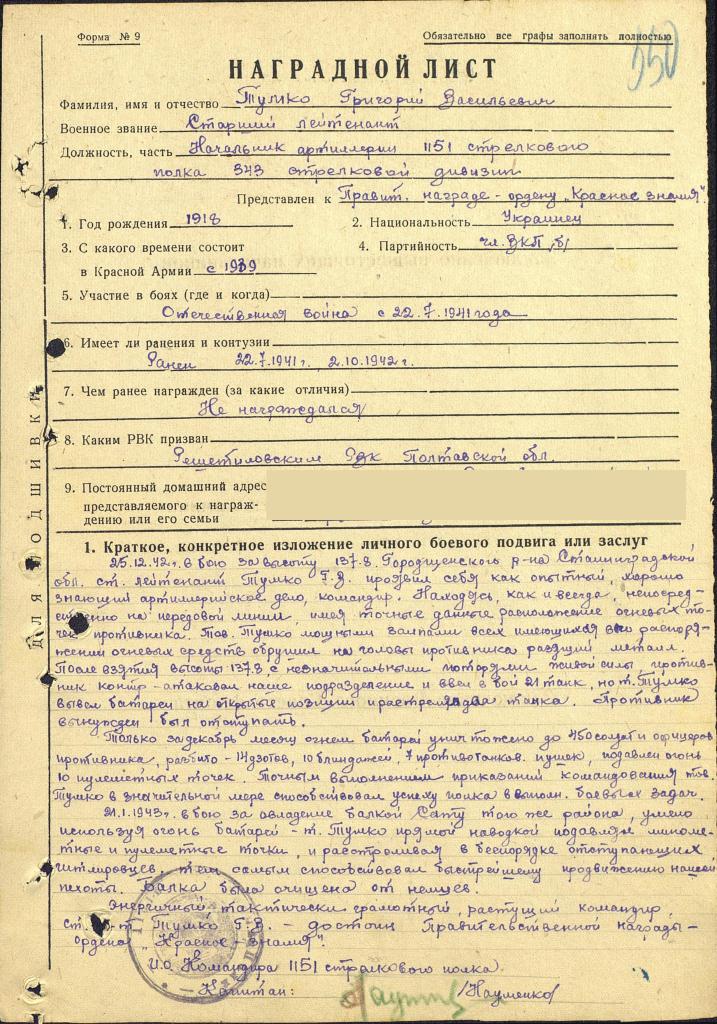 Форма № 9
Обязательно все графы заполнять полностью
550
НАГРАДНОЙ ЛИСТ
Фамилия, имя и отчество Тумко Григорий Васильевич
Военное звание Старший лейтенант
Должность, часть Начальник артиллерии 1151 стрелкового
полка 343 стрелковой дивизии
Представлен к Правит. награде - ордену „Красное знамя".
1. Год рождения 1918
2. Национальность Украинец
3. С какого времени состоит
в Красной Армии с 1939
4. Партийность чл. ВКП /б/
5. Участие в боях (где и когда)
Отечественная война с 22.7.1941 года
6. Имеет ли ранения и контузии
Ранен 22.7.1941 г., 2.10.1942 г.
7. Чем ранее награжден (за какие отличия)
Не награждался
8. Каким РВК призван
Решетиловским РВК Полтавской обл.
9. Постоянный домашний адрес
представляемого к награж-
дению или его семьи
ДЛЯ ПОДШИВКИ
1. Краткое, конкретное изложение личного боевого подвига или заслуг
25.12.42 г. в бою за высоту 137.8. Городищенского р-на Сталинградской
обл. ст. лейтенант Тумко Г.В. проявил себя как опытный, хорошо
знающий артиллерийское дело, командир. Находясь, как и всегда, непосред-
ственно на передовой линии, имея точные данные расположение огневых то-
чек противника. Тов. Тумко мощными залпами всех имеющихся в его распоря-
жении огневых средств обрушил на головы противника разящий металл.
После взятия высоты 137.8, с незначительными потерями живой силы, против-
ник контр-атаковал наше подразделение и ввел в бой 21 танк, но т. Тумко
вывел батареи на открытые позиции и расстрелял два танка. Противник
вынужден был отступать.
Только за декабрь месяц огнем батарей уничтожено до 450 солдат и офицеров
противника, разбито - 14 дзотов, 10 блиндажей, 7 противотанков. пушек, подавлен огонь
10 пулеметных точек. Точным выполнением приказаний командования тов.
Тумко в значительной мере способствовал успеху полка в выполн. боевых задач.
21.1.1943 г. в бою за овладение балкой Сату того же района, умело
используя огонь батарей - т. Тумко прямой наводкой подавлял миноме-
тные и пулеметные точки, и расстреливал в беспорядке отступающих
гитлеровцев, тем самым способствовал быстрейшему продвижению нашей
пехоты. Балка была очищена от немцев.
Энергичный, тактически грамотный, растущий командир,
ст. л-т Тумко Г.В. - достоин Правительственной награды -
ордена „Красное - знамя".
И.О. Командира 1151 стрелкового полка
Капитан: /Науменко/